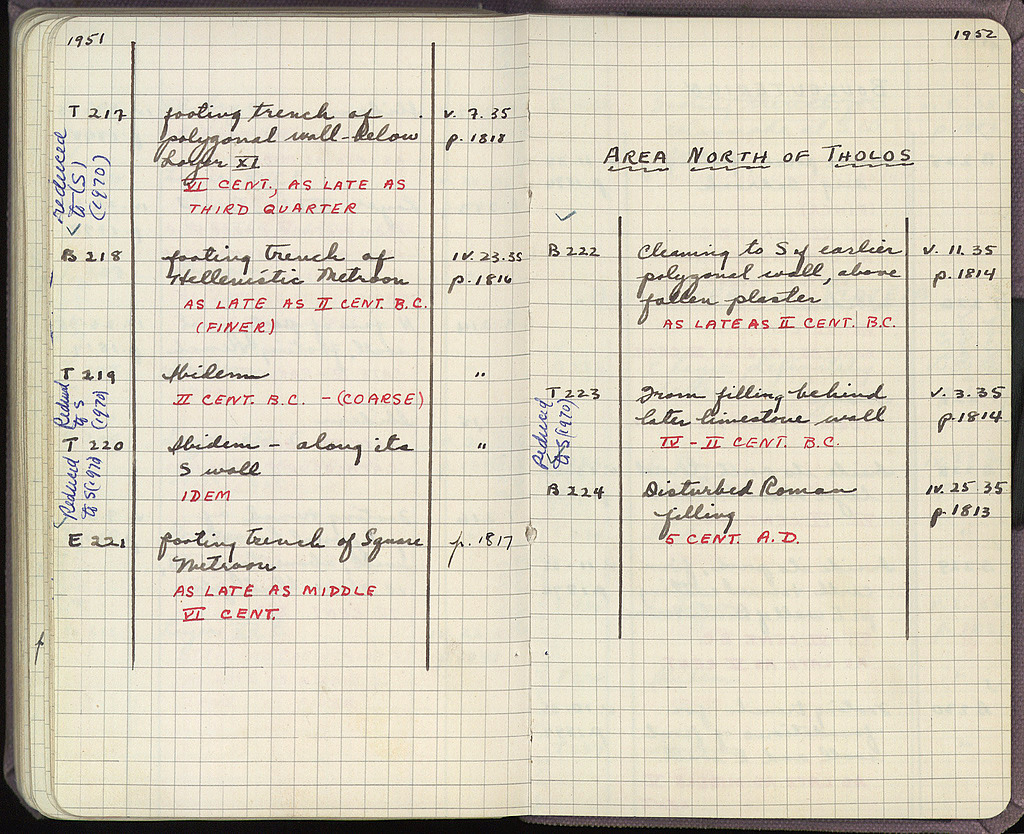 1951
T 217 footing trench of v. 7. 35
polygonal wall - below p. 1818
Layer XI
VI CENT., AS LATE AS
THIRD QUARTER
reduced
to (S)
(1970)
B 218 footing trench of IV. 23. 35
Hellenistic Metroon p. 1816
AS LATE AS II CENT. B.C.
(FINER)
T 219 Ibidem "
II CENT. B.C. - (COARSE)
Reduced
to S
(1970)
T 220 Ibidem - along its "
S wall
IDEM
Reduced
to S (1970)
E 221 footing trench of Square p. 1817
Metroon
AS LATE AS MIDDLE
VI CENT.
1952
AREA NORTH OF THOLOS
B 222 Cleaning to S of earlier V. 11. 35
polygonal wall, above p. 1814
fallen plaster
AS LATE AS II CENT. B.C.
T 223 From filling behind V. 3. 35
later limestone wall p. 1814
IV - II CENT. B.C.
Reduced
to S (1970)
B 224 Disturbed Roman IV. 25. 35
filling p. 1813
5 CENT. A.D.